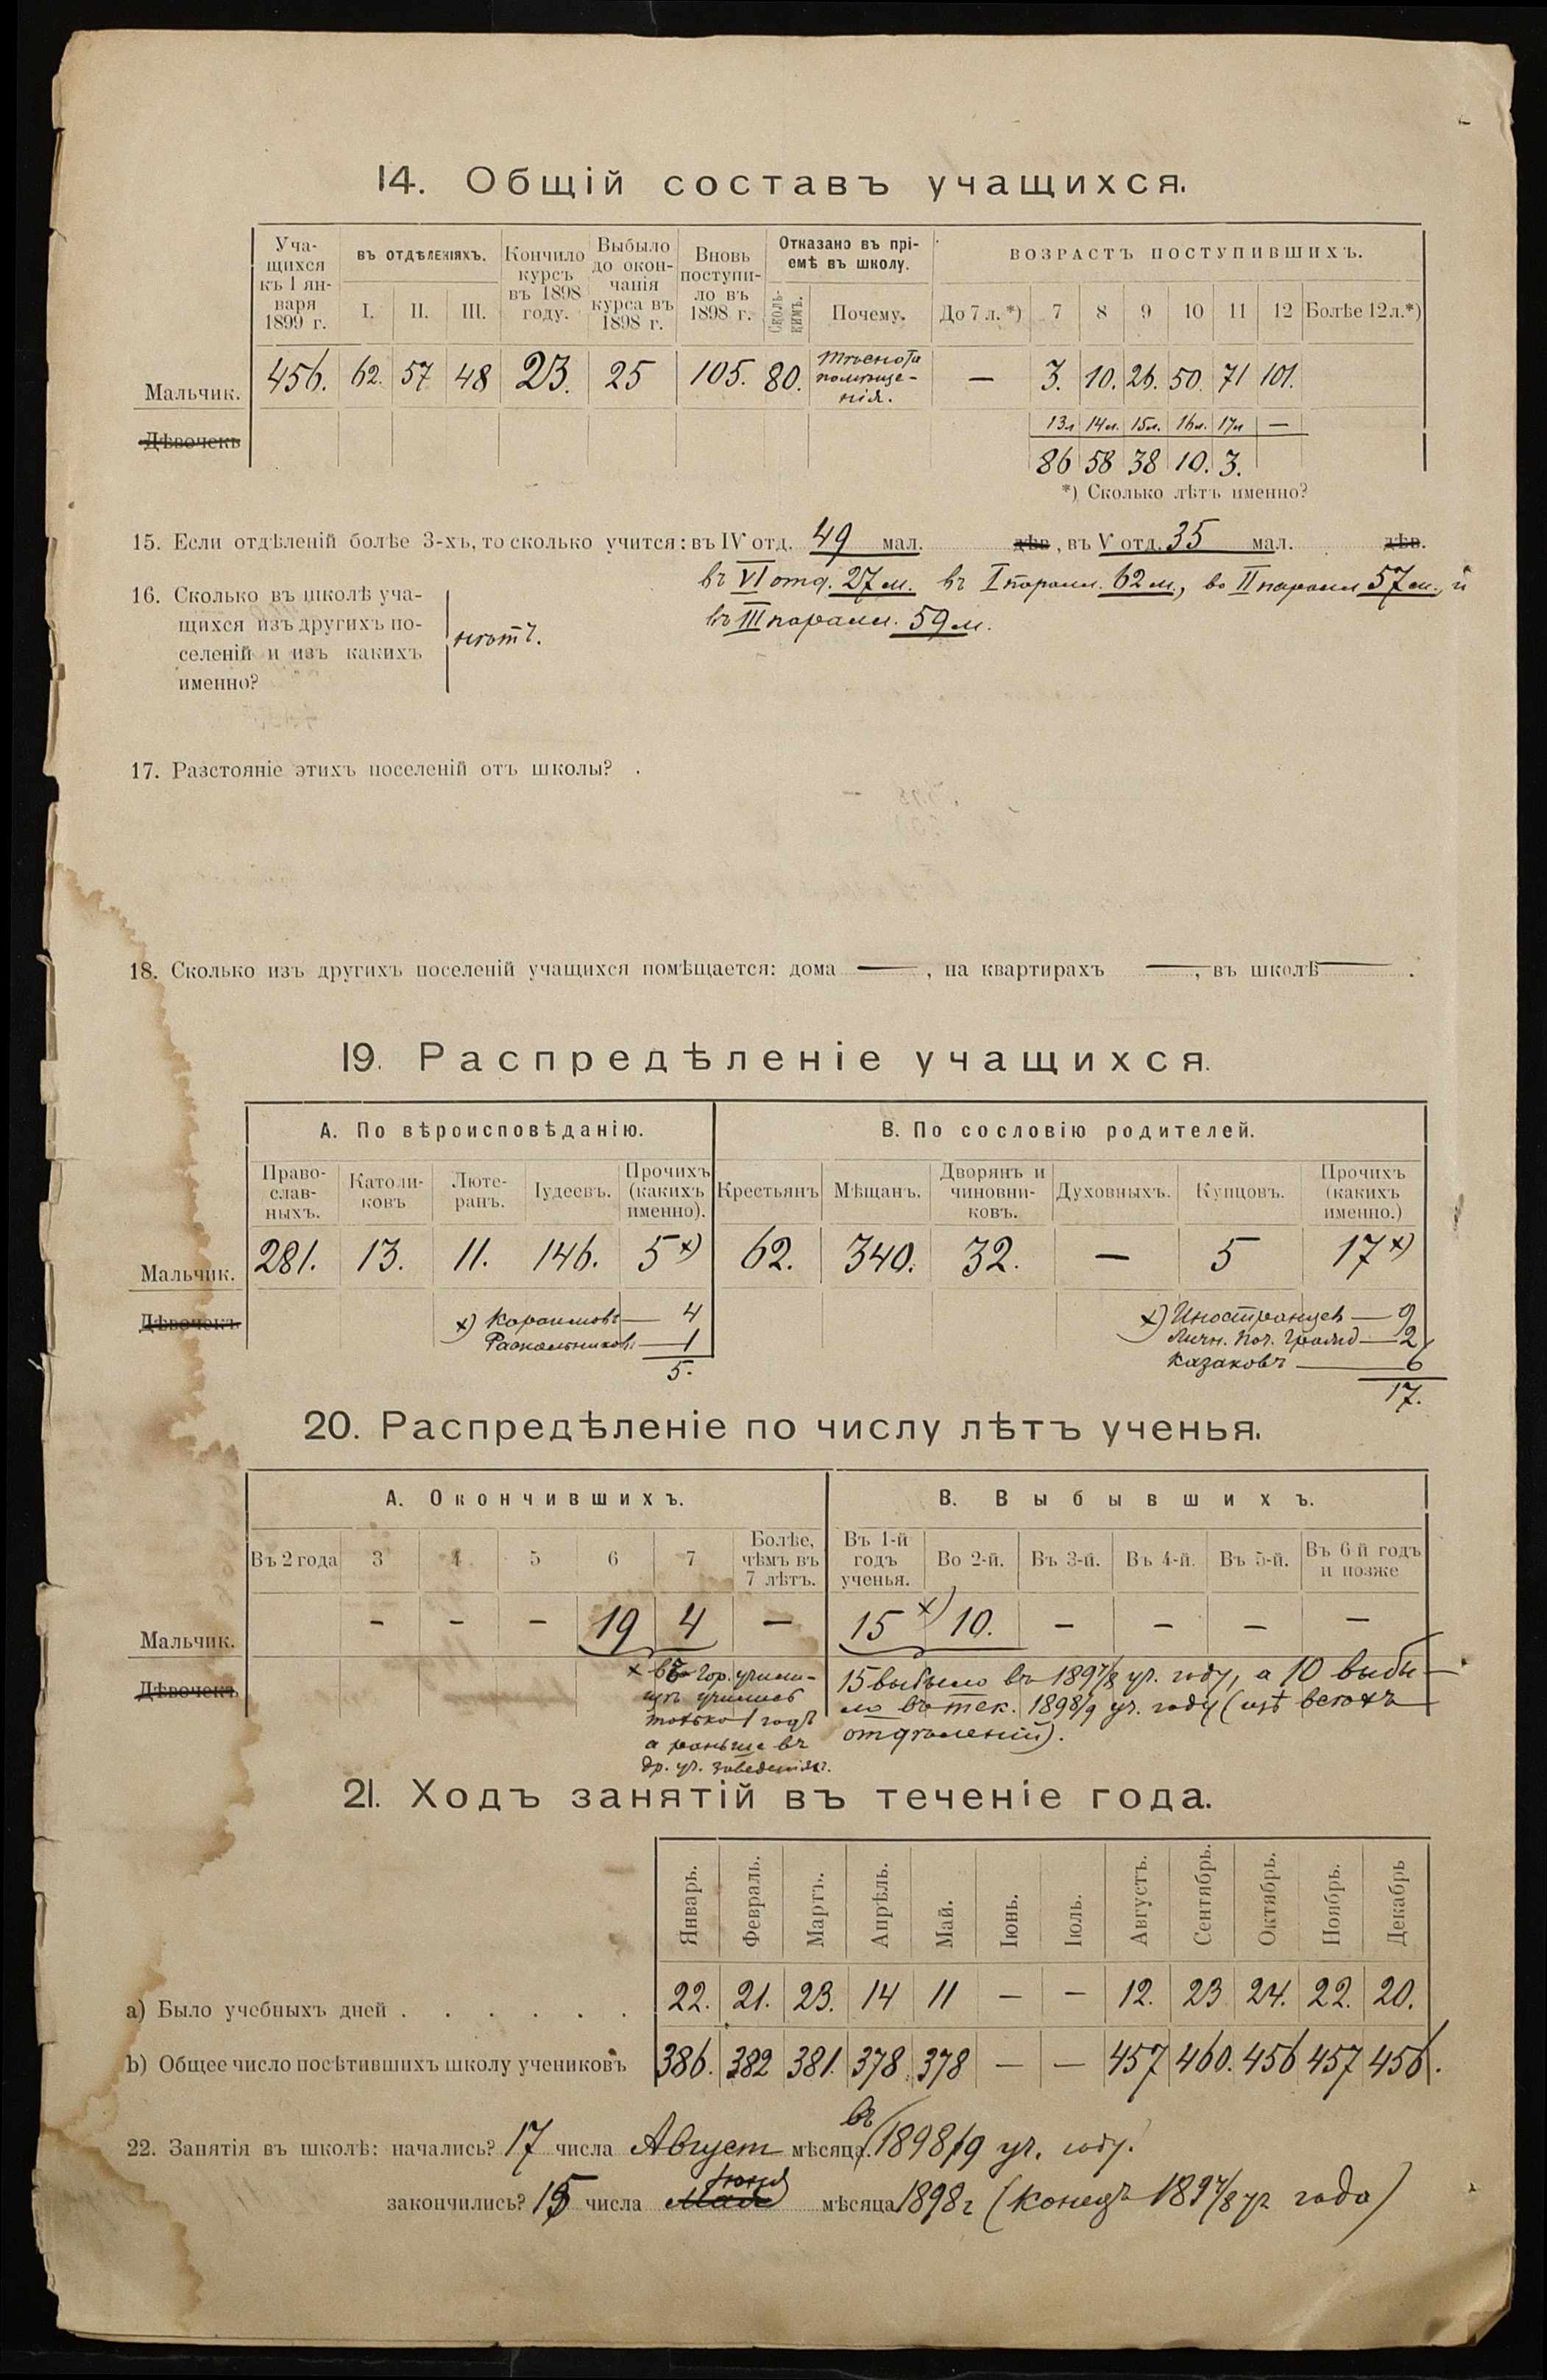 14. Общій составъ учащихся.
Уча-
щихся
къ 1 ян-
варя
1899 г.
въ отдѣленіяхъ.
I. II. III.
Кончило
курсъ
въ 1898
году.
Выбыло
до окон-
чанія
курса въ
1898 г.
Вновь
поступи-
ло въ
1898 г.
Отказано въ прі-
емѣ въ школу.
Сколь-
кимъ.
Почему.
ВОЗРАСТЪ ПОСТУПИВШИХЪ.
До 7 л. *) 7 8 9 10 11 12 Болѣе 12 л.*)
Мальчик. 456. 62. 57 48 23. 25 105. 80. тѣснота помѣще-нія. — 3. 10. 26. 50. 71 101.
Дѣвочекъ
13л 14л. 15л. 16л. 17л —
86 58 38 10. 3.
*) Сколько лѣтъ именно?
15. Если отдѣленій болѣе 3-хъ, то сколько учится: въ IV отд. 49 мал. дѣв, въ V отд. 35 мал. дѣв.
въ VI отд. 27 м. въ I парал. 62 м., во II парал 57 м., и
въ III парал. 59 м.
16. Сколько въ школѣ уча-
щихся изъ другихъ по-
селеній и изъ какихъ
именно?
нѣтъ.
17. Разстояніе этихъ поселеній отъ школы? .
18. Сколько изъ другихъ поселеній учащихся помѣщается: дома —, на квартирахъ —, въ школѣ — .
19. Распредѣленіе учащихся.
А. По вѣроисповѣданію.
В. По сословію родителей.
Право-
слав-
ныхъ.
Католи-
ковъ
Люте-
ранъ.
Іудеевъ.
Прочихъ
(какихъ
именно).
Крестьянъ
Мѣщанъ.
Дворянъ и
чиновни-
ковъ.
Духовныхъ.
Купцовъ.
Прочихъ
(какихъ
именно.)
Мальчик. 281. 13. 11. 146. 5 х) 62. 340. 32. — 5 17 х)
Дѣвочекъ
х) Караимовъ — 4
Раскольниковъ — 1
5.
х) Иностранцев — 9
Личн. поч. гражд — 2
Казаковъ — 6
17.
20. Распредѣленіе по числу лѣтъ ученья.
А. Окончившихъ.
В. Выбывшихъ.
Въ 2 года 3 4 5 6 7
Болѣе,
чѣмъ въ
7 лѣтъ.
Въ 1-й
годъ
ученья.
Во 2-й. Въ 3-й. Въ 4-й. Въ 5-й.
Въ 6-й годъ
и позже
Мальчик. – – – 19 4 — 15 х) 10. – – – –
Дѣвочекъ
х въ гор. учили-
щѣ учились
только 1 годъ
а раньше въ
др. уч. заведеніях.
15 выбыло въ 1897/8 уч. году, а 10 выбы-
ло въ тек. 1898/9 уч. году (изъ всѣхъ
отдѣленій).
21. Ходъ занятій въ теченіе года.
Январь. Февраль. Мартъ. Апрѣль. Май. Іюнь. Іюль. Августъ. Сентябрь. Октябрь. Ноябрь. Декабрь
а) Было учебныхъ дней . . . . . . 22. 21. 23. 14 11 — — 12. 23 24. 22. 20.
b) Общее число посѣтившихъ школу учениковъ 386. 382 381. 378 378 — — 457 460. 456 457 456.
22. Занятія въ школѣ: начались? 17 числа Август мѣсяца. въ 1898/9 уч. году.
закончились? 15 числа Мая Іюня мѣсяца 1898 г (конецъ 1897/8 уч года)